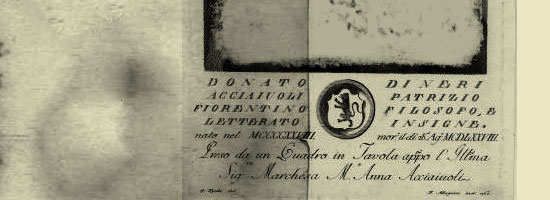 DONATO DI NERI
ACCIAIUOLI PATRIZIO
FIORENTINO FILOSOFO, E
LETTERATO INSIGNE.
nato nel MCCCCXXVIII. mor. il dì 28. Ag.º MCDLXXVIII.
Preso da un Quadro in Tavola appo l'Illma
Sigra Marchesa Ma Anna Acciaiuoli